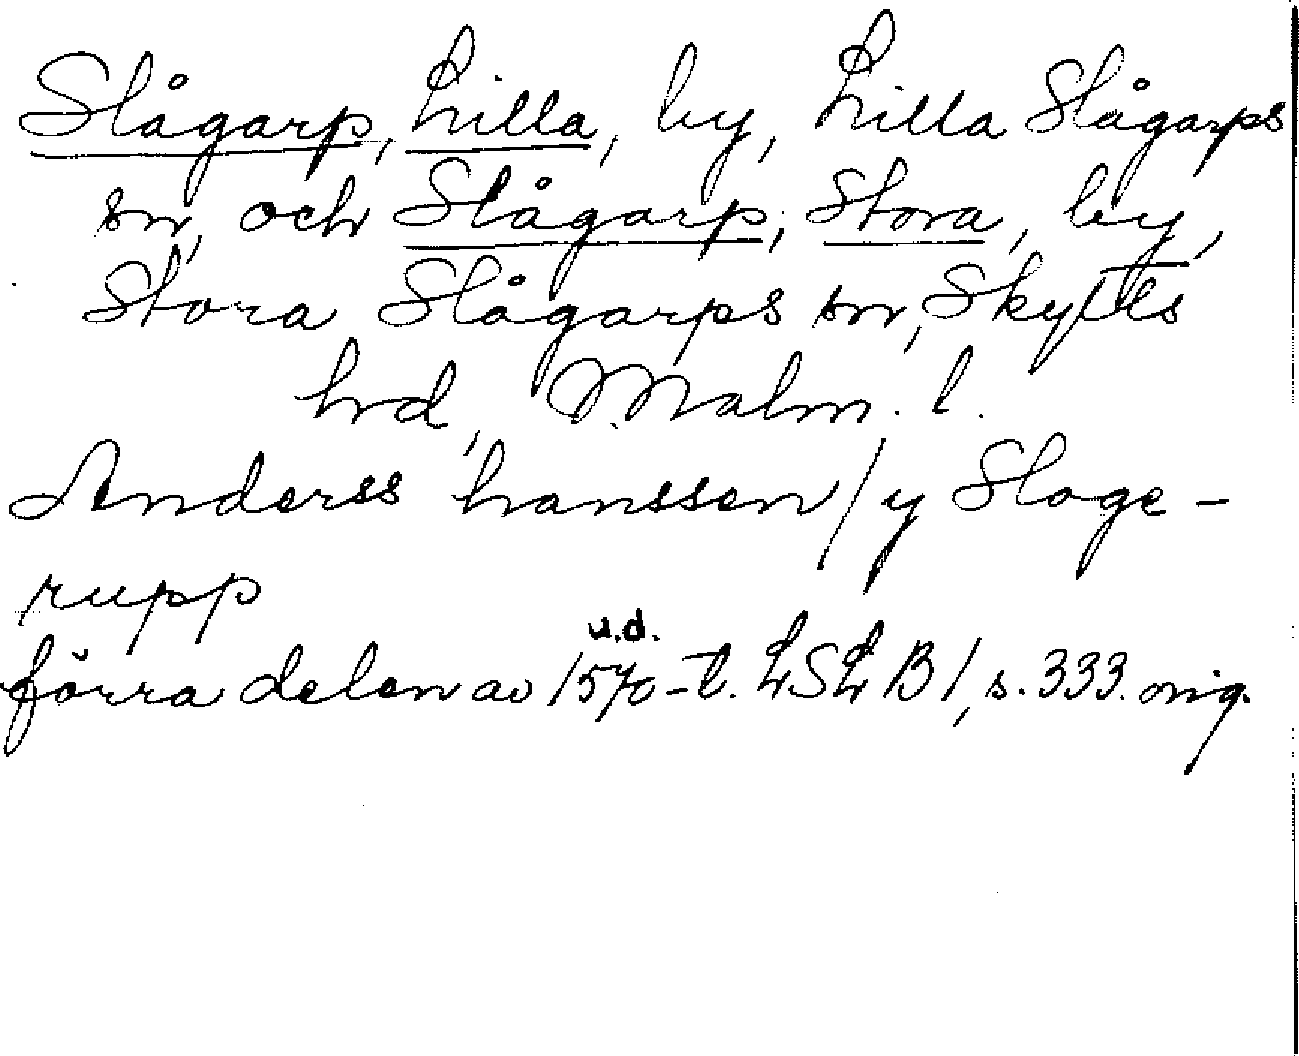 Slågarp, Lilla, by, Lilla Slågarps
sn, och Slågarp, Stora, by,
Stora Slågarps sn, Skytts
hd, Malm. l.
Anderss hanssen / y Sloge-
rupp
u.d.
förra delen av 1570-t. LSLB1, s. 333. orig.